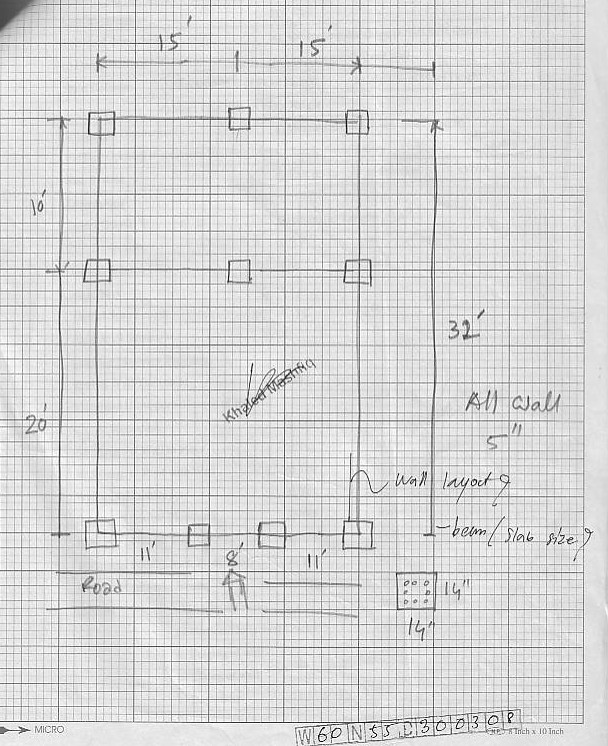 15' 15'
10'
32'
20'
Khaled Mashfiq
All wall
5"
wall layout?
beam (slab size?
11' 8' 11'
Road
14"
14"
W60N55C300308
MICRO
8 Inch x 10 Inch